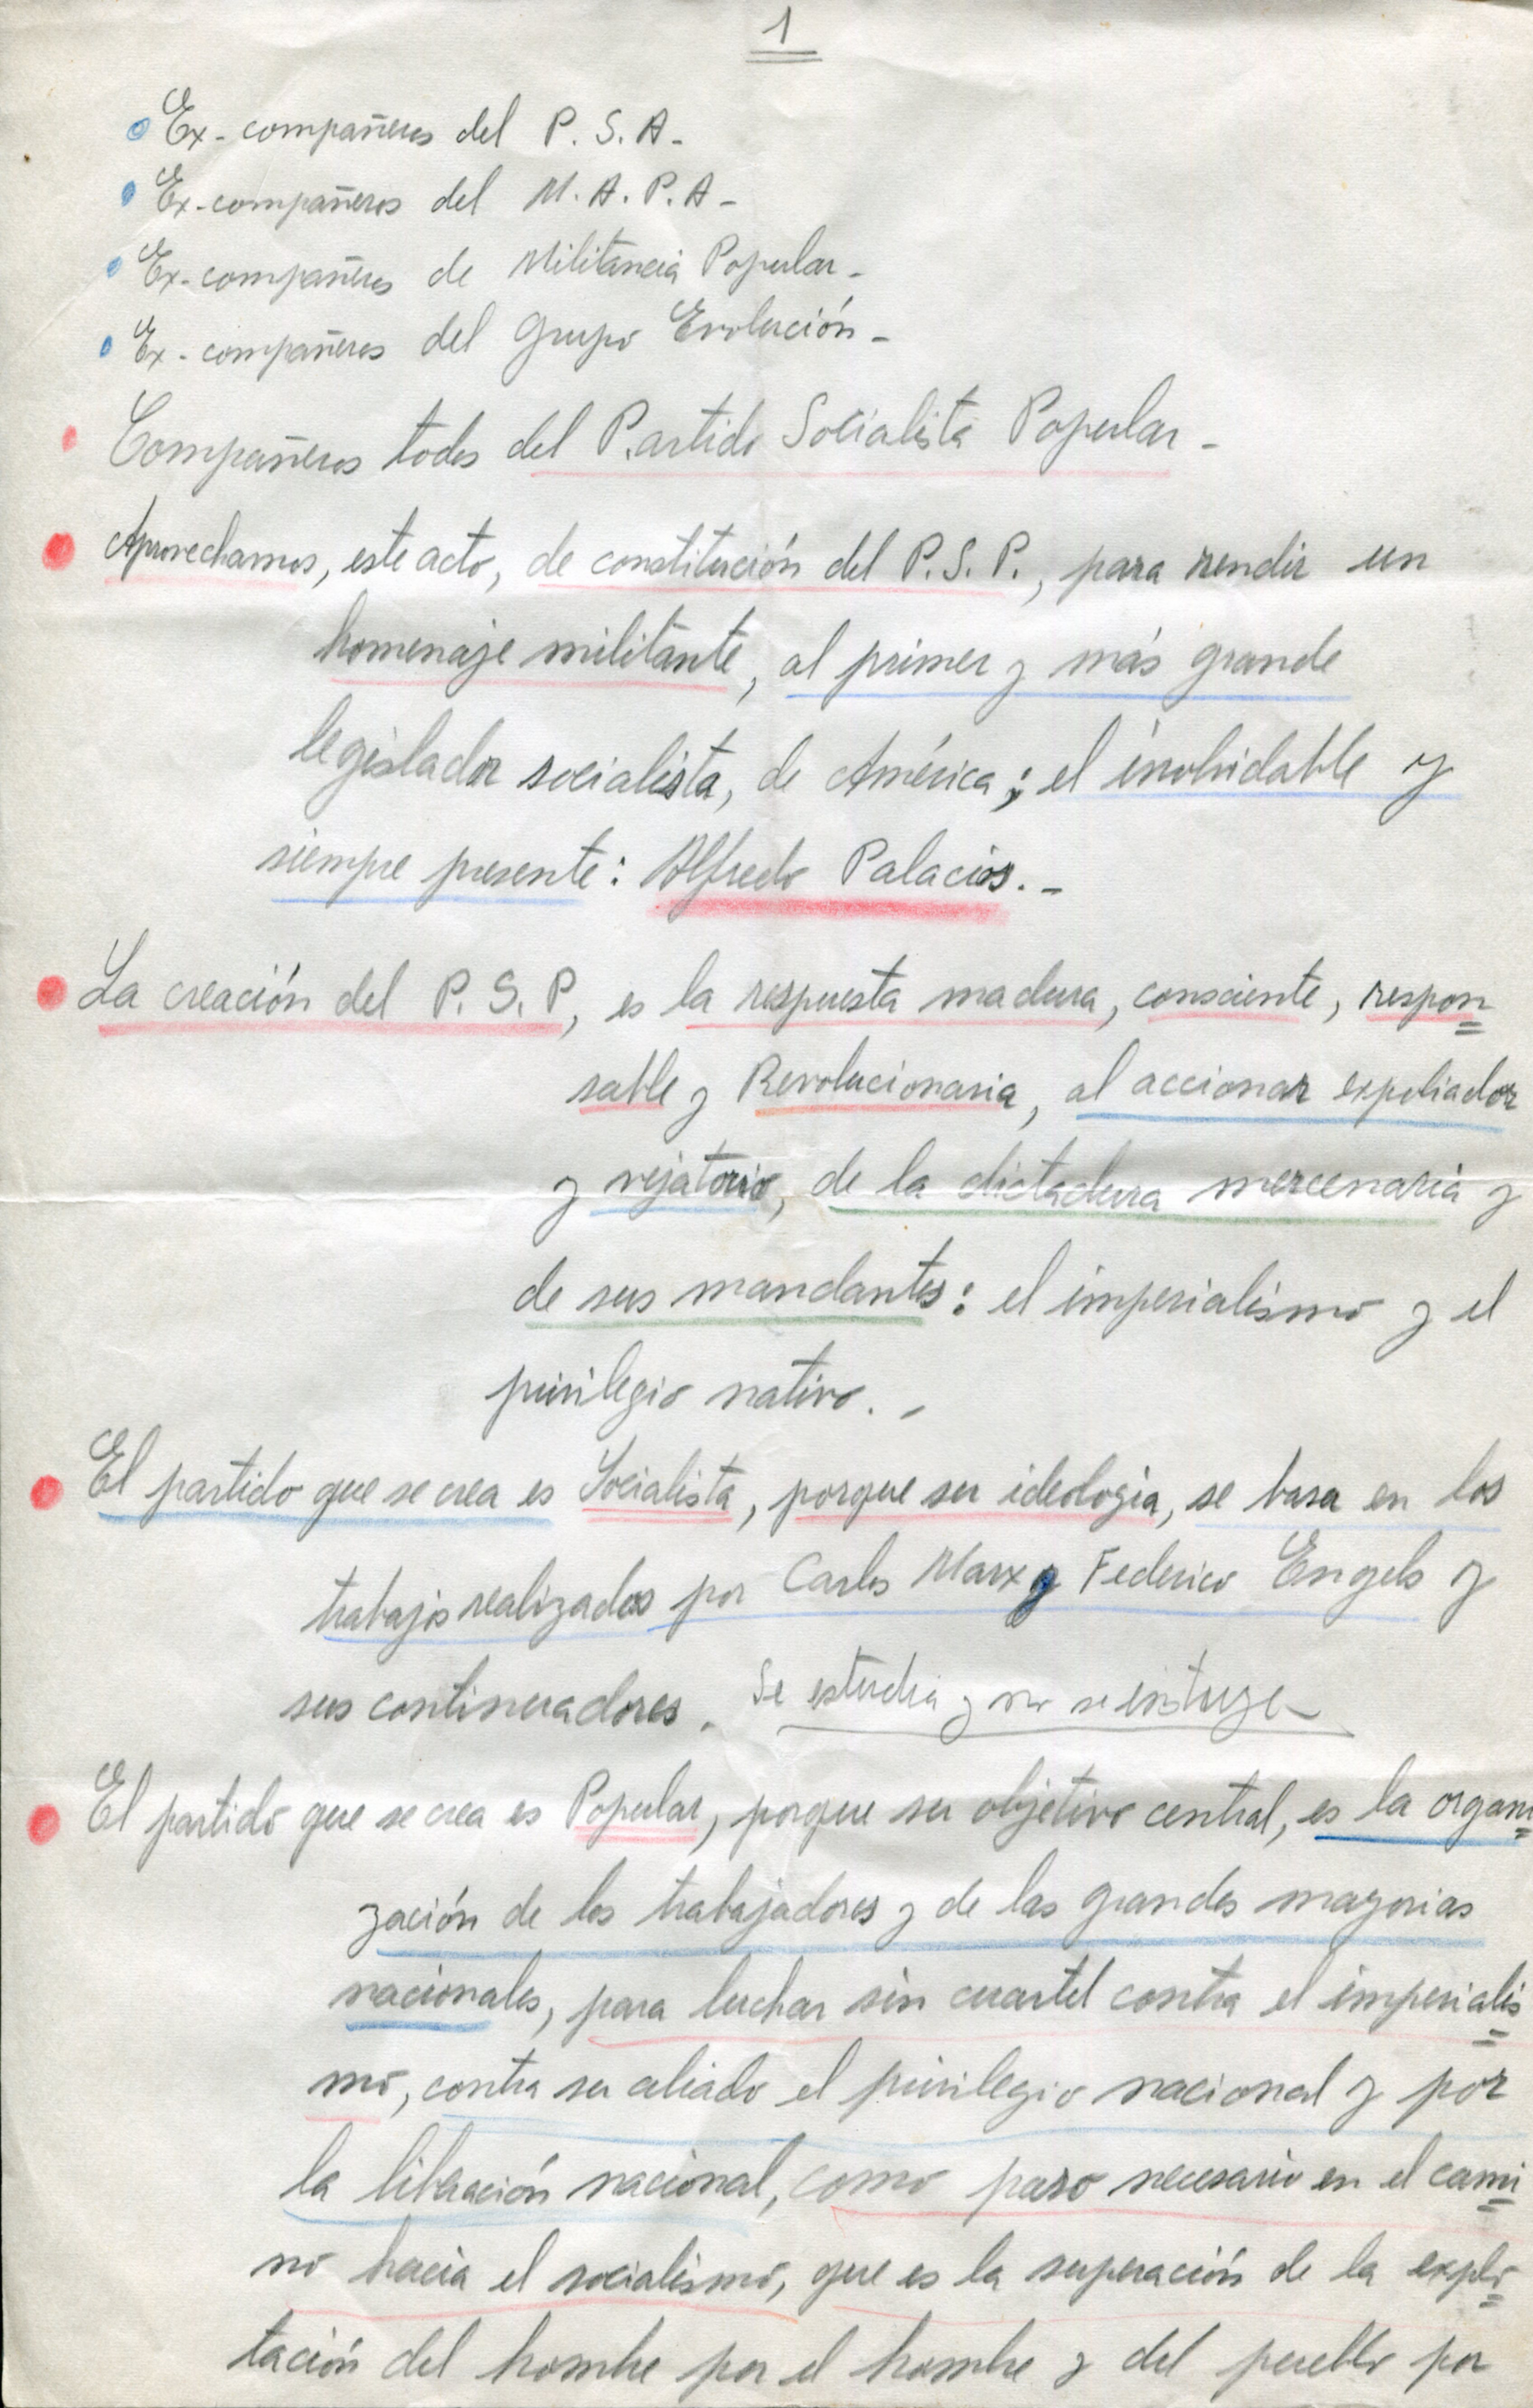 1
Ex-compañeros del P. S. A-
Ex-compañeros del M. A. P. A-
Ex-compañeros de Militancia Popular-
Ex-compañeros del grupo Evolución-
Compañeros todos del Partido Socialista Popular-
Aprovechamos, este acto, de constitución del P. S. P., para rendir un
homenaje militante, al primer y más grande
legislador socialista, de América; el inolvidable y
siempre presente: Alfredo Palacios.-
La creación del P. S. P, es la respuesta madura, consciente, respon=
sable y Revolucionaria, al accionar expoliador
y vejatorio, de la dictadura mercenaria y
de sus mandantes: el imperialismo y el
privilegio nativo.-
El partido que se crea es Socialista, porque su ideologia, se basa en los
trabajos realizados por Carlos Marx y Federico Engels y
sus continuadores. Se estudia y no se intuye-
El partido que se crea es Popular, porque su objetivo central, es la organi=
zación de los trabajadores y de las grandes mayorias
nacionales, para luchar sin cuartel contra el imperialis=
mo, contra su aliado el privilegio nacional y por
la liberación nacional, como paso necesario en el cami=
no hacia el socialismo, que es la superación de la explo=
tación del hombre por el hombre y del pueblo por